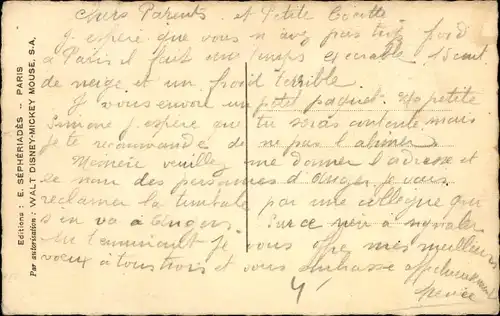 Chers Parents et Petite
J espere que vous n avez pas trop froid
a Paris il fait une temps execrable 15 cent
de neige et un froid terrible
J vous envoie un petit paquet. Ma petite
Simone j espere que tu seras contente mais
je te recommande de ne pas l abimer
veuillez me donner l adresse et
le nom des personnes d Anger je vais
reclamer la timbale par une collegue qui
s en va a Angers Sur ce rien a signaler
je vous offre mes meilleurs
voeux a tous trois et vous embrasse affectueusement
Editions : E. SÉPHÉRIADÈS -- PARIS
Par autorisation : WALT DISNEY-MICKEY MOUSE, S.A.